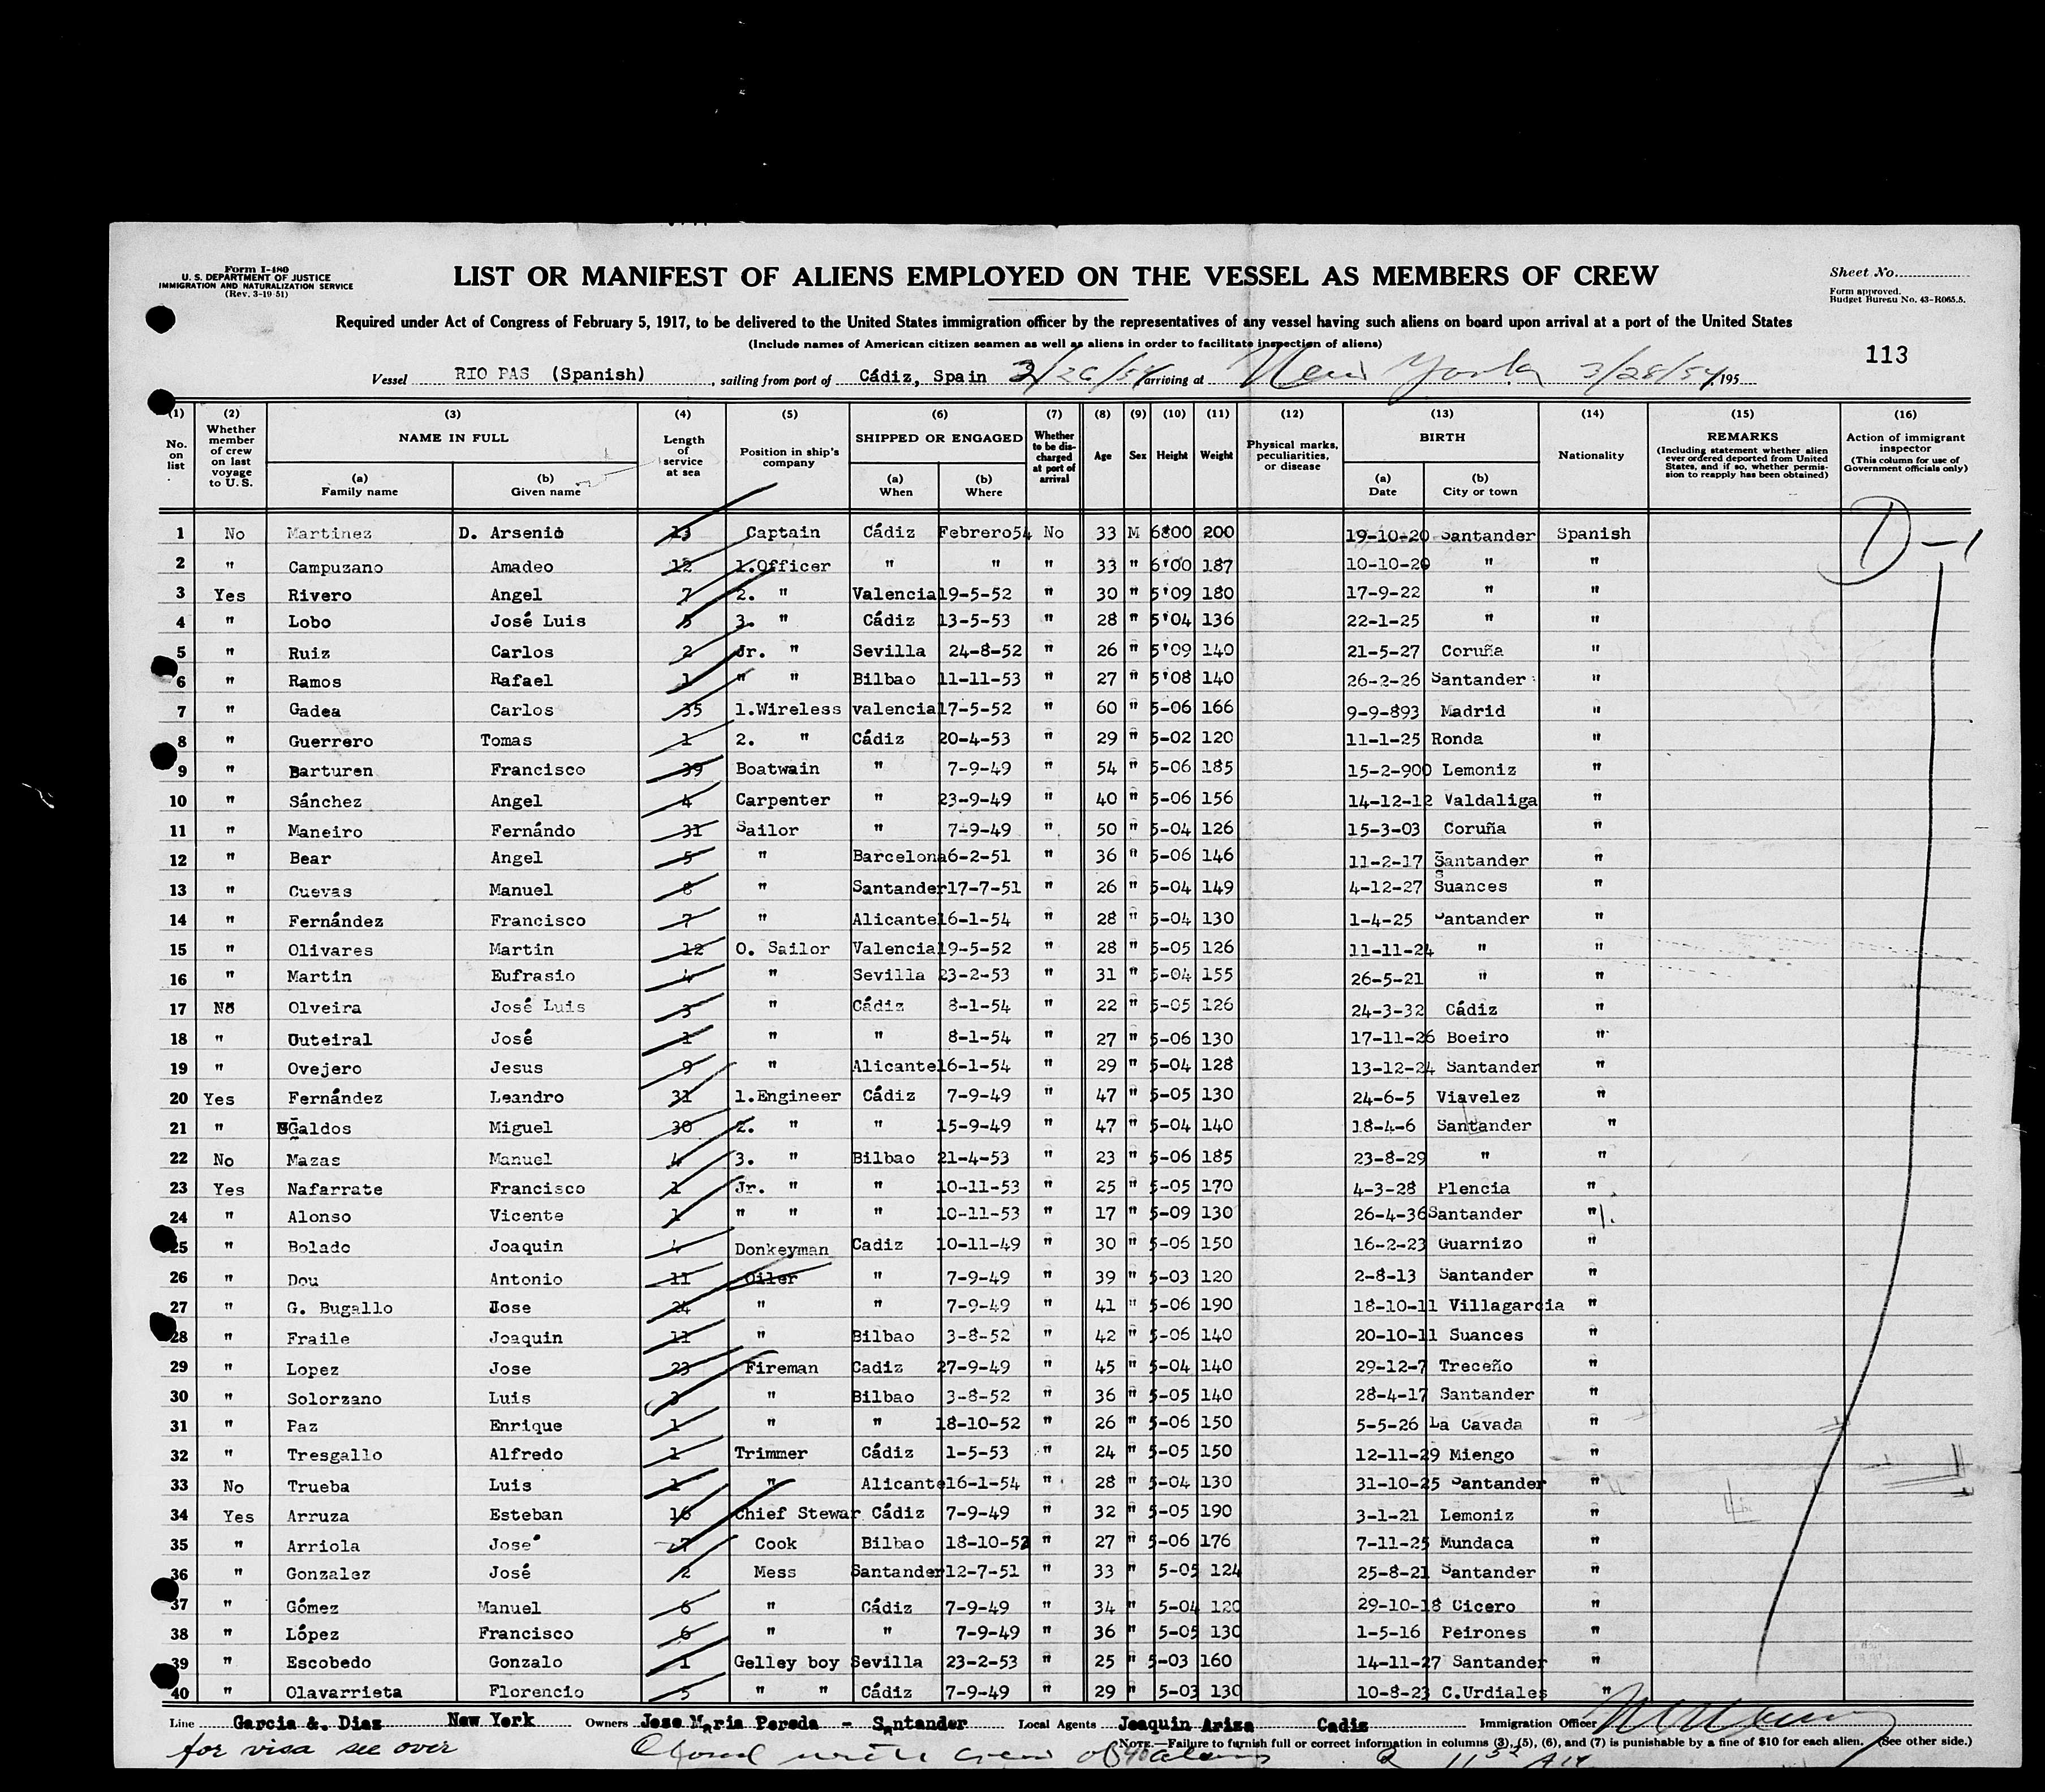 Form I-480
U. S. DEPARTMENT OF JUSTICE
IMMIGRATION AND NATURALIZATION SERVICE
(Rev. 3-19-51)
LIST OR MANIFEST OF ALIENS EMPLOYED ON THE VESSEL AS MEMBERS OF CREW
Sheet No.
Form approved.
Budget Bureau No. 43-R065.5.
Required under Act of Congress of February 5, 1917, to be delivered to the United States immigration officer by the representatives of any vessel having such aliens on board upon arrival at a port of the United States
(Include names of American citizen seamen as well as aliens in order to facilitate inspection of aliens)
113
Vessel RIO PAS (Spanish), sailing from port of Cádiz, Spain 3/26/54 arriving at New York 3/28/54, 195
(1) (2) (3) (4) (5) (6) (7) (8) (9) (10) (11) (12) (13) (14) (15) (16)
No. on list Whether member of crew on last voyage to U. S. NAME IN FULL (a) Family name (b) Given name Length of service at sea Position in ship's company SHIPPED OR ENGAGED (a) When (b) Where Whether to be discharged at port of arrival Age Sex Height Weight Physical marks, peculiarities, or disease BIRTH (a) Date (b) City or town Nationality REMARKS (Including statement whether alien ever ordered deported from United States, and if so, whether permission to reapply has been obtained) Action of immigrant inspector (This column for use of Government officials only)
1 No Martinez D. Arsenio 13 Captain Cádiz Febrero54 No 33 M 6'00 200 19-10-20 Santander Spanish
2 " Campuzano Amadeo 12 1.Officer " " " 33 " 6'00 187 10-10-20 " "
3 Yes Rivero Angel 7 2. " Valencia 19-5-52 " 30 " 5'09 180 17-9-22 " "
4 " Lobo José Luis 5 3. " Cádiz 13-5-53 " 28 " 5'04 136 22-1-25 " "
5 " Ruiz Carlos 2 Jr. " Sevilla 24-8-52 " 26 " 5'09 140 21-5-27 Coruña "
6 " Ramos Rafael 1 " " Bilbao 11-11-53 " 27 " 5'08 140 26-2-26 Santander "
7 " Gadea Carlos 35 1.Wireless valencia 17-5-52 " 60 " 5-06 166 9-9-893 Madrid "
8 " Guerrero Tomas 1 2. " Cádiz 20-4-53 " 29 " 5-02 120 11-1-25 Ronda "
9 " Barturen Francisco 39 Boatwain " 7-9-49 " 54 " 5-06 185 15-2-900 Lemoniz "
10 " Sánchez Angel 4 Carpenter " 23-9-49 " 40 " 5-06 156 14-12-12 Valdaliga "
11 " Maneiro Fernándo 31 Sailor " 7-9-49 " 50 " 5-04 126 15-3-03 Coruña "
12 " Bear Angel 5 " Barcelona 6-2-51 " 36 " 5-06 146 11-2-17 Santander "
13 " Cuevas Manuel 8 " Santander 17-7-51 " 26 " 5-04 149 4-12-27 Suances "
14 " Fernández Francisco 7 " Alicante 16-1-54 " 28 " 5-04 130 1-4-25 Santander "
15 " Olivares Martin 12 O. Sailor Valencia 19-5-52 " 28 " 5-05 126 11-11-24 " "
16 " Martin Eufrasio 4 " Sevilla 23-2-53 " 31 " 5-04 155 26-5-21 " "
17 No Olveira José Luis 3 " Cádiz 8-1-54 " 22 " 5-05 126 24-3-32 Cádiz "
18 " Outeiral José 1 " " 8-1-54 " 27 " 5-06 130 17-11-26 Boeiro "
19 " Ovejero Jesus 9 " Alicante 16-1-54 " 29 " 5-04 128 13-12-24 Santander "
20 Yes Fernández Leandro 31 1.Engineer Cádiz 7-9-49 " 47 " 5-05 130 24-6-5 Viavelez "
21 " Galdos Miguel 30 2. " " 15-9-49 " 47 " 5-04 140 18-4-6 Santander "
22 No Mazas Manuel 4 3. " Bilbao 21-4-53 " 23 " 5-06 185 23-8-29 " "
23 Yes Nafarrate Francisco 1 Jr. " " 10-11-53 " 25 " 5-05 170 4-3-28 Plencia "
24 " Alonso Vicente 1 " " " 10-11-53 " 17 " 5-09 130 26-4-36 Santander "
25 " Bolado Joaquin 4 Donkeyman Cadiz 10-11-49 " 30 " 5-06 150 16-2-23 Guarnizo "
26 " Dou Antonio 11 Oiler " 7-9-49 " 39 " 5-03 120 2-8-13 Santander "
27 " G. Bugallo Jose 24 " " 7-9-49 " 41 " 5-06 190 18-10-11 Villagarcia "
28 " Fraile Joaquin 11 " Bilbao 3-8-52 " 42 " 5-06 140 20-10-11 Suances "
29 " Lopez Jose 23 Fireman Cadiz 27-9-49 " 45 " 5-04 140 29-12-7 Treceño "
30 " Solorzano Luis 3 " Bilbao 3-8-52 " 36 " 5-05 140 28-4-17 Santander "
31 " Paz Enrique 1 " " 18-10-52 " 26 " 5-06 150 5-5-26 La Cavada "
32 " Tresgallo Alfredo 1 Trimmer Cádiz 1-5-53 " 24 " 5-05 150 12-11-29 Miengo "
33 No Trueba Luis 1 " Alicante 16-1-54 " 28 " 5-04 130 31-10-25 Santander "
34 Yes Arruza Esteban 16 Chief Stewar Cádiz 7-9-49 " 32 " 5-05 190 3-1-21 Lemoniz "
35 " Arriola José 7 Cook Bilbao 18-10-52 " 27 " 5-06 176 7-11-25 Mundaca "
36 " Gonzalez José 2 Mess Santander 12-7-51 " 33 " 5-05 124 25-8-21 Santander "
37 " Gómez Manuel 6 " Cádiz 7-9-49 " 34 " 5-04 120 29-10-18 Cicero "
38 " López Francisco 6 " " 7-9-49 " 36 " 5-05 130 1-5-16 Peirones "
39 " Escobedo Gonzalo 1 Gelley boy Sevilla 23-2-53 " 25 " 5-03 160 14-11-27 Santander "
40 " Olavarrieta Florencio 5 " " Cádiz 7-9-49 " 29 " 5-03 130 10-8-23 C.Urdiales "
Line Garcia &. Diaz New York Owners Jose Maria Pereda - Santander Local Agents Joaquin Ariza Cadiz Immigration Officer
NOTE.—Failure to furnish full or correct information in columns (3), (5), (6), and (7) is punishable by a fine of $10 for each alien. (See other side.)
for visa see over
with crew of 40 aliens